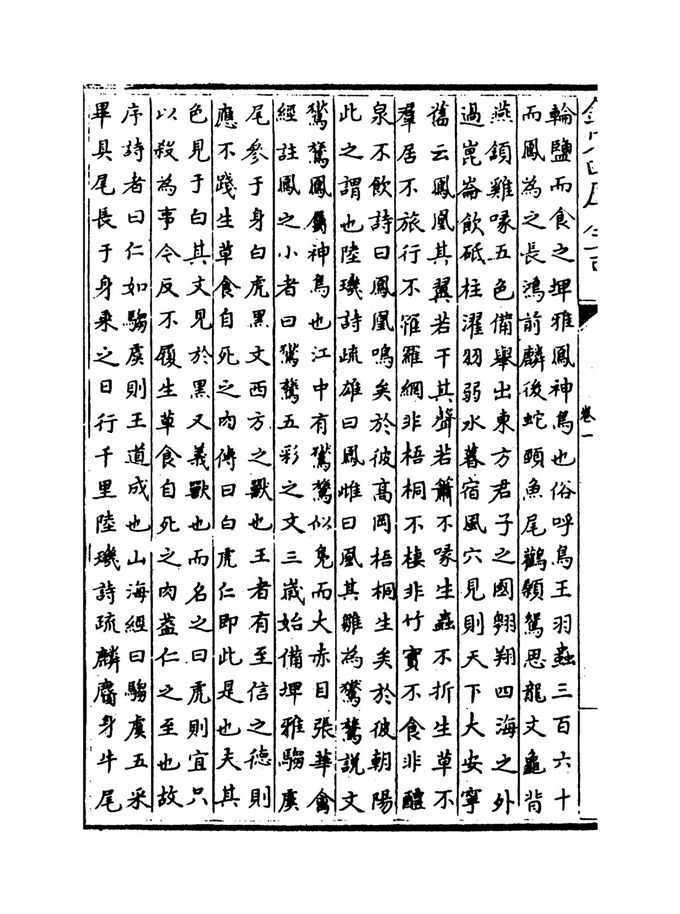 欽定四庫全書
卷一
輪鹽而食之埤雅鳳神鳥也俗呼鳥王羽蟲三百六十
而鳳為之長鴻前麟後蛇頸魚尾鸛顙鴛思龍文龜背
燕頷雞喙五色備舉出東方君子之國翱翔四海之外
過崑崙飲砥柱濯羽弱水暮宿風穴見則天下大安寧
舊云鳳凰其翼若干其聲若簫不喙生蟲不折生草不
羣居不旅行不罹羅網非梧桐不棲非竹實不食非醴
泉不飲詩曰鳳凰鳴矣於彼高岡梧桐生矣於彼朝陽
此之謂也陸璣詩疏雄曰鳳雌曰凰其雛為鸑鷟説文
鸑鷟鳳屬神鳥也江中有鸑鷟似鳧而大赤目張華禽
經註鳳之小者曰鸑鷟五彩之文三歲始備埤雅騶虞
尾參于身白虎黑文西方之獸也王者有至信之德則
應不踐生草食自死之肉傳曰白虎仁即此是也夫其
色見于白其文見於黑又義獸也而名之曰虎則宜只
以殺為事今反不履生草食自死之肉葢仁之至也故
序詩者曰仁如騶虞則王道成也山海經曰騶虞五采
畢具尾長于身乗之日行千里陸璣詩疏麟麕身牛尾